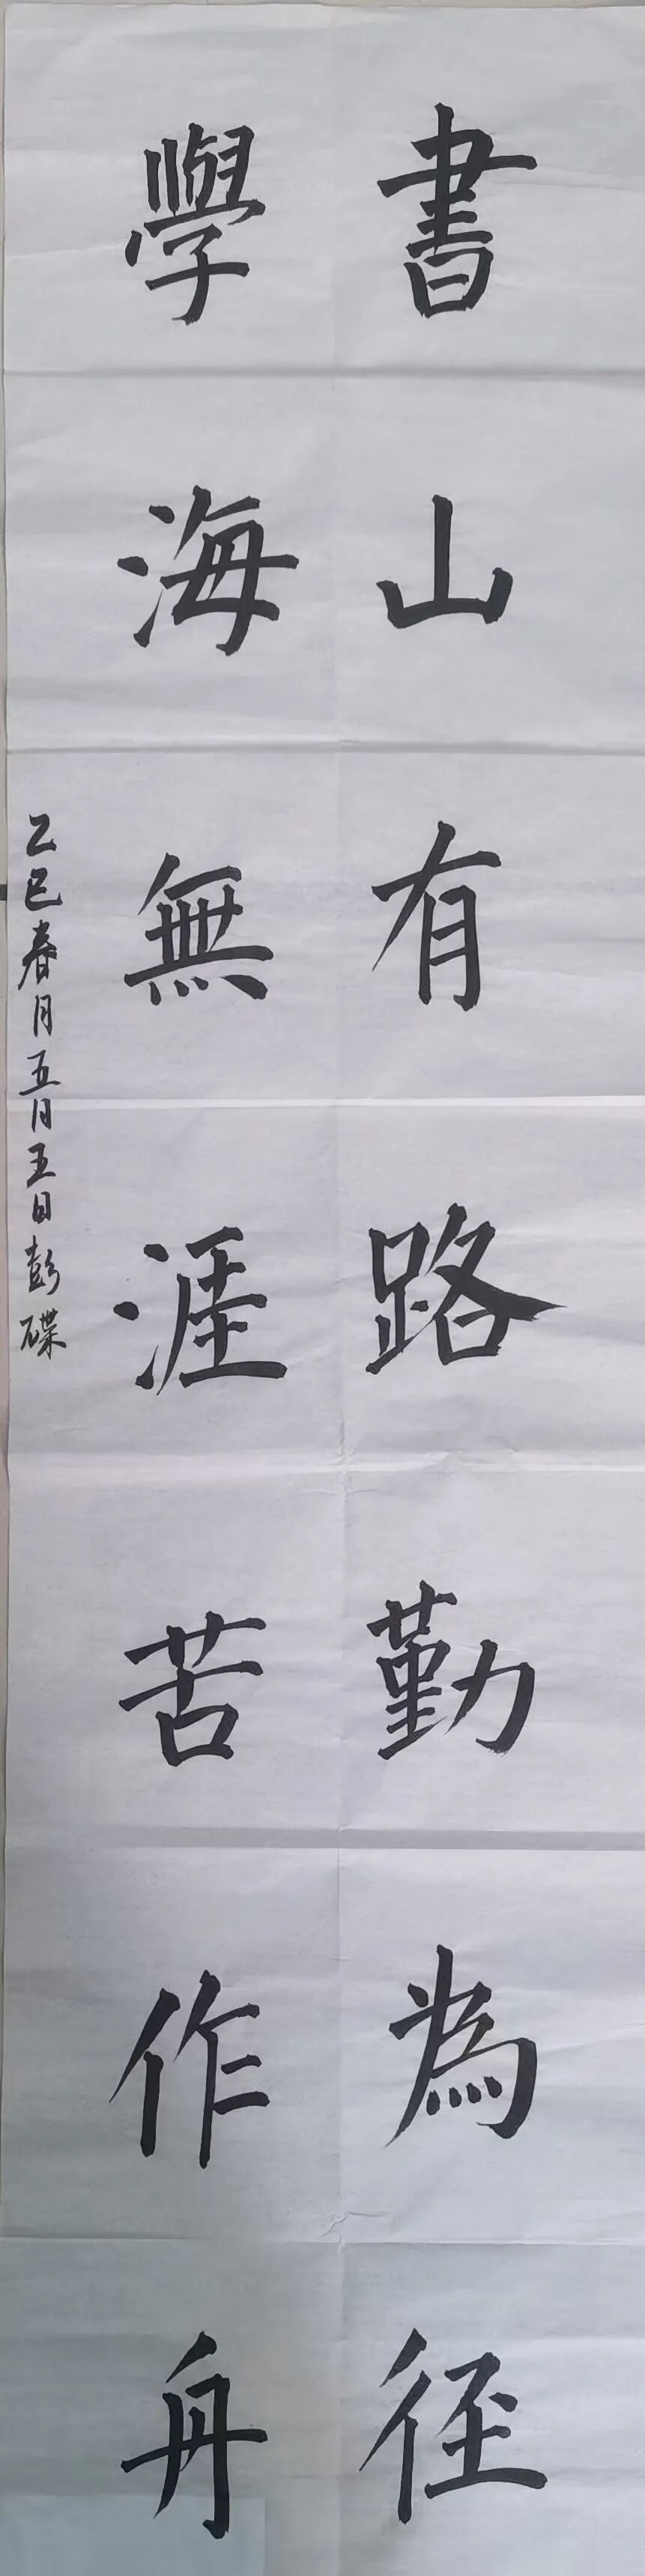 書山有路勤為径
學海無涯苦作舟
乙巳春月五月五日彭碟